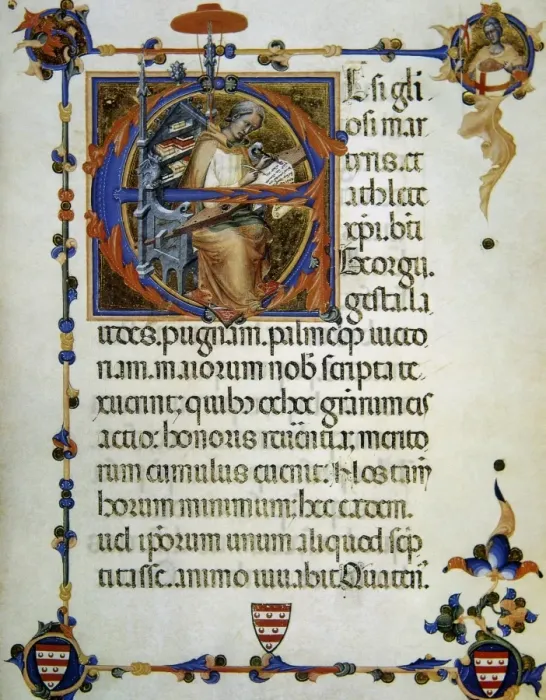 Etsi glo
riosi mar
tyris. et
athlete
xpi. bti
Georgii.
gesta. la
udes. pugnam. palmeqp victo
riam. maiorum nob scripta te
xuerint; quibz et hec grarum eis
actio: honoris reuerentia; merito
rum cumulus euenit: Nos tam
horum minimum: hec eadem.
uel ipsorum unum aliquod scrip
titasse. animo iuuabit. Quaten.